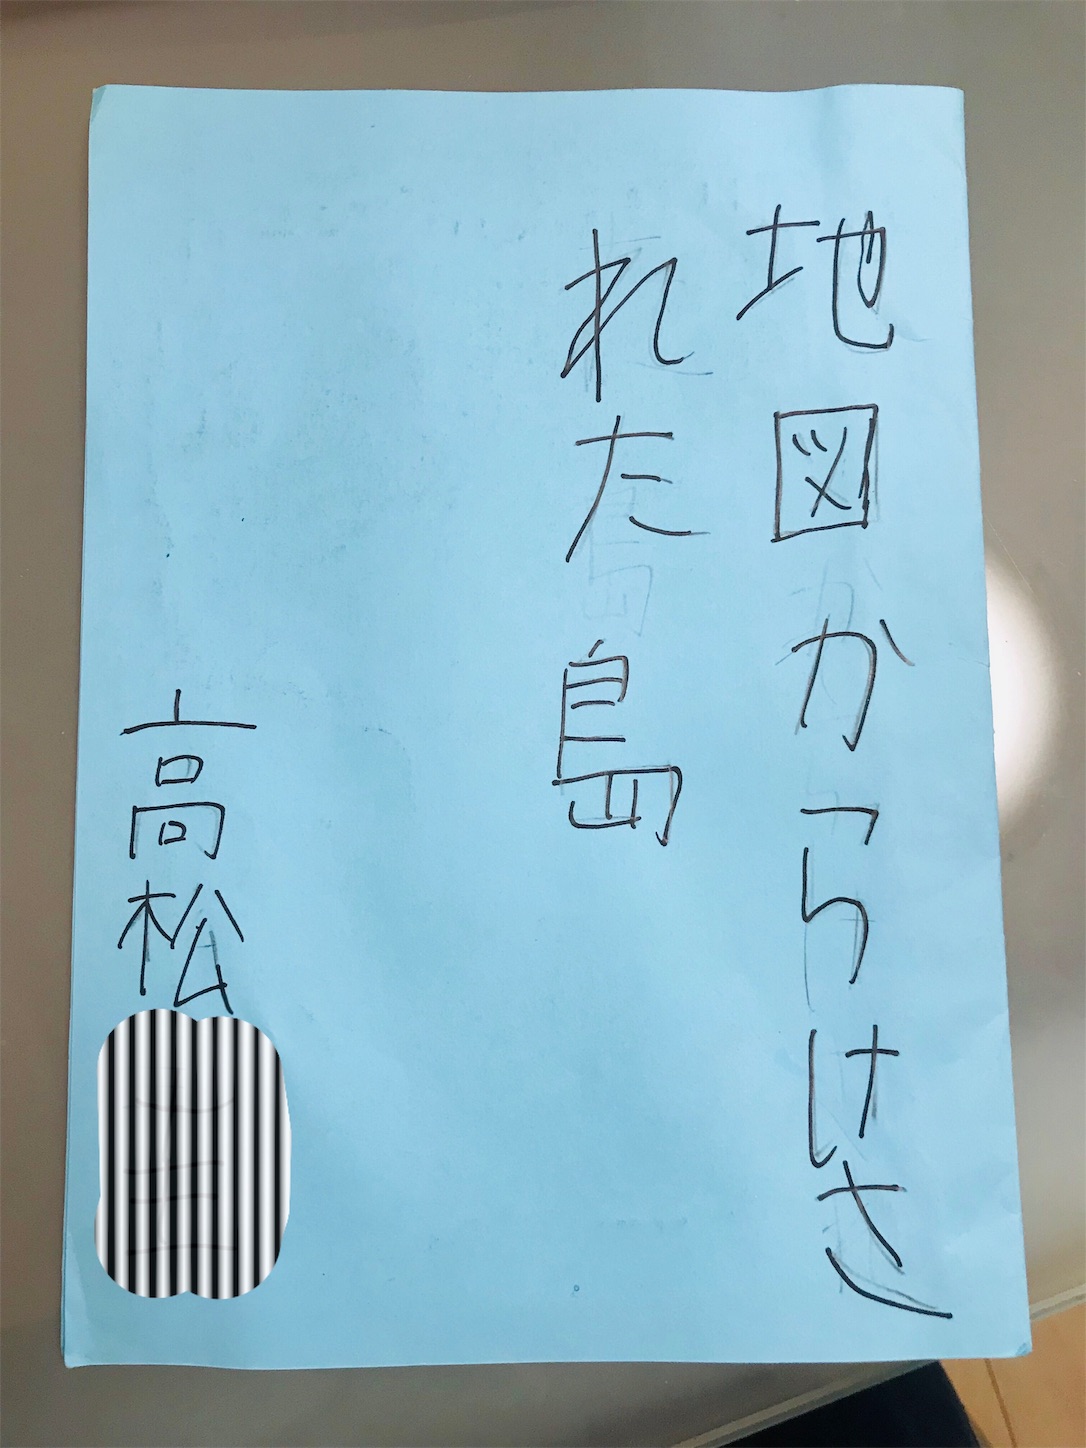 地図からけさ
れた島
高松